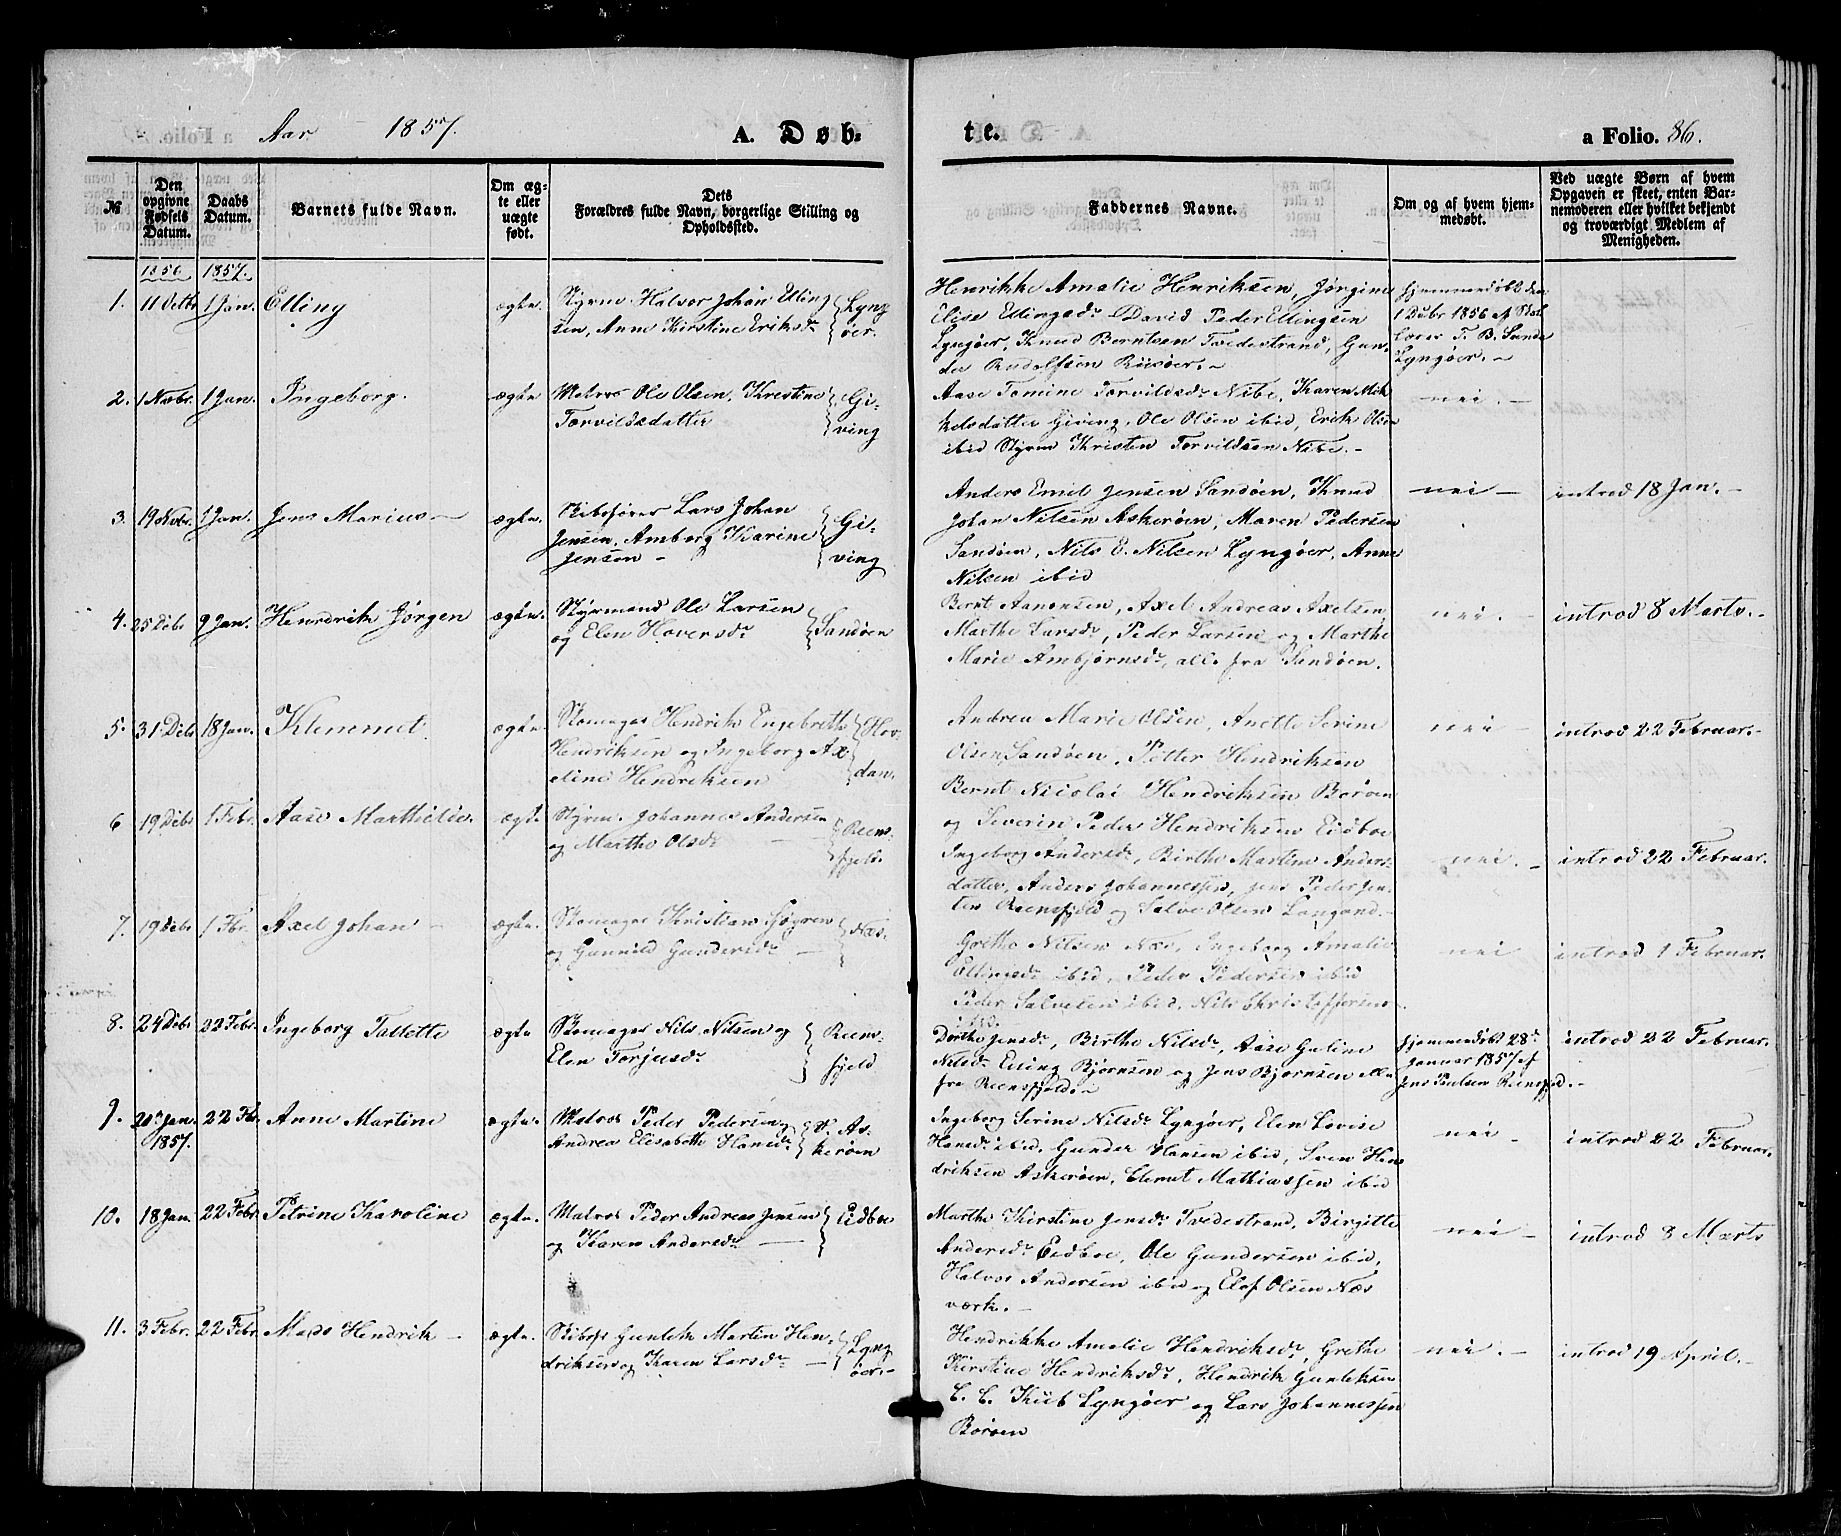 Aar 1857. A. Døb-
te. a Folio. 86.
№
Den opgivne Fødsels Datum.
Daabs Datum.
Barnets fulde Navn.
Om ægte eller uægte født.
Dets Forældres fulde Navn, borgerlige Stilling og Opholdssted.
Faddernes Navne.
Om og af hvem hjemmedøbt.
Ved uægte Børn af hvem Opgaven er skeet, enten Barnemoderen eller hvilket bekjendt og troværdigt Medlem af Menigheden.
1856 1857.
1. 11 1 Jan. Elling ægte. Styrm Halvor Johan Elling
sen, Anne Kirstine Eriksdr Lyng
øer.
Henrikke Amalie Henriksen, Jørgine
Elise Ellingsdr David Peder Ellingsen
Lyngøer, Knud Berntsen Tvedestrand, Gun-
der Rudolfsen Riisøer.-
Hjemmedøbt den
1 Dbr 1856 af Skol
lærer T. B. Sunde
Lyngøer. -
2. 1 Novbr. 1 Jan. Ingeborg. ægte Matros Ole Olsen, Kirstine
Torvildsdatter Gi-
ving
Aase Tomine Torvildsdr Nibe, Karen Mik
kelsdatter Giving, Ole Olsen ibid, Erik Olsen
ibid Styrm Kristen Torvildsen Nibe. -
nei. -
3. 19 Novbr. 1 Jan. Jens Marius - ægte. Skibsfører Lars Johan
Jensen, Amborg Karine
Jensen - Gi-
ving
Anders Emil Jensen Sandøen, Knud
Johan Nilsen Askerøen, Maren Pedersen
Sandøen, Nils E. Nilsen Lyngøer, Anne
Nilsen ibid
nei - introd 18 Jan. -
4. 25 Debr 9 Jan. Hendrik Jørgen ægte. Styrmand Ole Larsen
og Elen Haversdr Sandøen
Bernt Aanonsen, Axel Andreas Axelsen
Marthe Larsdr, Peder Larsen og Marthe
Marie Ambjørnsdr, alle fra Sandøen.
nei. - introd 8 Marts. -
5. 31 Debr 18 Jan. Klemmet. ægte Skomager Hendrik Engebreth
Hendriksen og Ingeborg Ax
eline Hendriksen Hov
dan.
Andrea Marie Olsen, Anette Serine
Olsen Sandøen, Petter Hendriksen
Bernt Nicolai Hendriksen Borøen
og Severin Peder Hendriksen Eidboe
nei - introd 22 Februar. -
6 19 Debr 1 Febr. Aase Marthilie. ægte Styrm. Johannes Andersen
og Marthe Olsdr - Reens-
fjeld.
Ingeborg Andersdr, Birthe Martine Anders
datter, Anders Johannessen, Jens Peder Jen-
sen Reensfjeld og Salve Olsen Langand. -
nei. - introd 22 Februar.
7. 19 Debr 1 Fbr. Axel Johan - ægte. Skomager Kristian Sjøgren
og Gunnild Gundersdr - Næs.
Grethe Nilsen Næs, Ingeborg Amalie
Ellingsdr ibid, Peder Pedersen ibid
Peder Salvesen ibid, Nils Christoffersen
ibid.
nei introd 1 Februar.
8. 24 Debr 22 Febr. Ingeborg Tallette ægte Skomager Nils Nilsen og
Elen Torjusdr Reens-
fjeld
Dorthe Jensdr, Birthe Nilsdr, Aase Galine
Nilsdr Elling Bjørnsen og Jens Bjørnsen alle
fra Reensfjeld. -
Hjemmedøbt 28de
Januar 1857 af
Jens Poulsen Reensfjeld. -
introd 22 Februar.
9. 20de Jan. 1857. 22 Fbr. Anne Martine ægte. Matros Peder Pedersen
Andrea Elisabeth Hansdr V. As-
kerøen
Ingeborg Serine Nilsdr Lyngøer, Elen Lovise
Hansdr ibid, Gunder Hansen ibid, Sven Hen
driksen Askerøen, Clemt Mathiassen ibid
nei - introd 22 Februar.
10. 18 Jan. 22 Febr. Petrine Karoline ægte. Matros Peder Andreas Jensen
og Karen Andersdr - Eidboe
Marthe Kirstine Jensdr Tvedestrand, Birgitte
Andersdr Eidboe, Ole Gundersen ibid,
Halvor Andersen ibid og Elef Olsen Næs
værk. -
nei - introd 8 Marts
11. 3 Febr. 22 Febr. Mads Hendrik - ægte. Skibsfr Gunlek Martin Hen-
driksen og Karen Larsdr - Lyng
øer.-
Hendrikke Amalie Hendriksdr, Grethe
Kirstine Hendriksdr, Hendrik Gunleksen
C. C. Kiib Lyngøer og Lars Johannessen
Borøen
nei. - introd 19 April. -